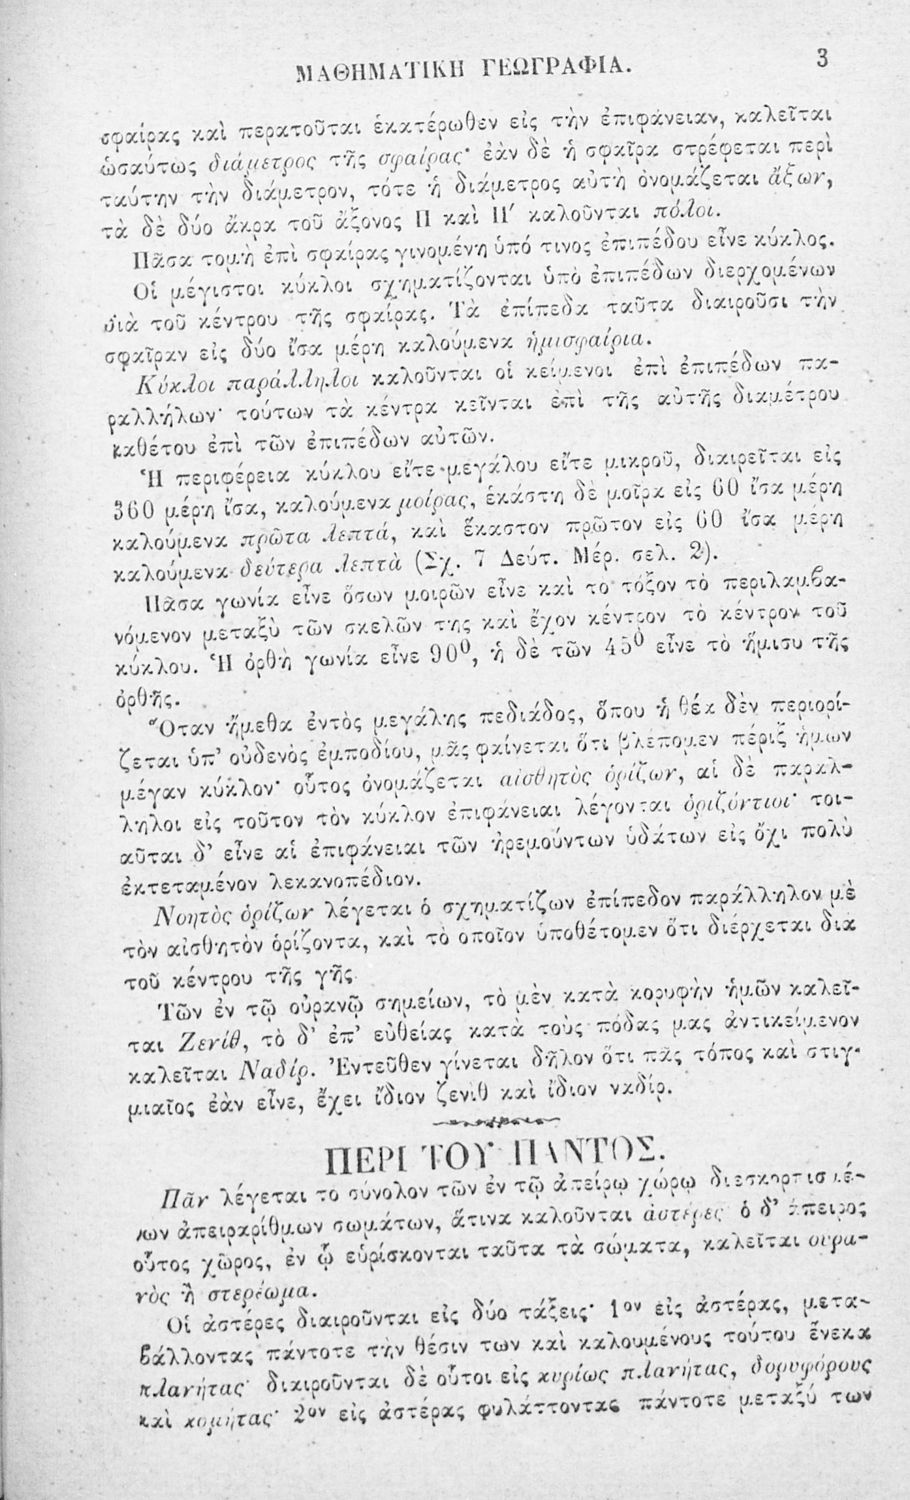 ΜΑΘΗΜΑΤΙΚΗ ΓΕΩΓΡΑΦΙΑ. 3
σφαίρας καὶ περατοῦται ἑκατέρωθεν εἰς τὴν ἐπιφάνειαν, καλεῖται
ὡσαύτως διάμετρος τῆς σφαίρας· ἐὰν δὲ ἡ σφαῖρα στρέφεται περὶ
ταύτην τὴν διάμετρον, τότε ἡ διάμετρος αὐτὴ ὀνομάζεται ἄξων,
τὰ δὲ δύο ἄκρα τοῦ ἄξονος Π καὶ Π′ καλοῦνται πόλοι.
Πᾶσα τομὴ ἐπὶ σφαίρας γινομένη ὑπό τινος ἐπιπέδου εἶνε κύκλος.
Οἱ μέγιστοι κύκλοι σχηματίζονται ὑπὸ ἐπιπέδων διερχομένων
διὰ τοῦ κέντρου τῆς σφαίρας. Τὰ ἐπίπεδα ταῦτα διαιροῦσι τὴν
σφαῖραν εἰς δύο ἴσα μέρη καλούμενα ἡμισφαίρια.
Κύκλοι παράλληλοι καλοῦνται οἱ κείμενοι ἐπὶ ἐπιπέδων πα-
ραλλήλων· τούτων τὰ κέντρα κεῖνται ἐπὶ τῆς αὐτῆς διαμέτρου
καθέτου ἐπὶ τῶν ἐπιπέδων αὐτῶν.
Ἡ περιφέρεια κύκλου εἴτε μεγάλου εἴτε μικροῦ, διαιρεῖται εἰς
360 μέρη ἴσα, καλούμενα μοίρας, ἑκάστη δὲ μοῖρα εἰς 60 ἴσα μέρη
καλούμενα πρῶτα λεπτά, καὶ ἕκαστον πρῶτον εἰς 60 ἴσα μέρη
καλούμενα δεύτερα λεπτὰ (Σχ. 7 Δεύτ. Μέρ. σελ. 2).
Πᾶσα γωνία εἶνε ὅσων μοιρῶν εἶνε καὶ το τόξον τὸ περιλαμβα-
νόμενον μεταξὺ τῶν σκελῶν της καὶ ἔχον κέντρον τὸ κέντρον τοῦ
κύκλου. Ἡ ὀρθὴ γωνία εἶνε 90⁰, ἡ δὲ τῶν 45⁰ εἶνε τὸ ἥμισυ τῆς
ὀρθῆς.
Ὅταν ἤμεθα ἐντὸς μεγάλης πεδιάδος, ὅπου ἡ θέα δὲν περιορί-
ζεται ὑπ’ οὐδενὸς ἐμποδίου, μᾶς φαίνεται ὅτι βλέπομεν πέριξ ἡμῶν
μέγαν κύκλον· οὗτος ὀνομάζεται αἰσθητὸς ὁρίζων, αἱ δὲ παράλ-
ληλοι εἰς τοῦτον τὸν κύκλον ἐπιφάνειαι λέγονται ὁριζόντιοι· τοι-
αῦται δ’ εἶνε αἱ ἐπιφάνειαι τῶν ἠρεμούντων ὑδάτων εἰς ὄχι πολὺ
ἐκτεταμένον λεκανοπέδιον.
Νοητὸς ὁρίζων λέγεται ὁ σχηματίζων ἐπίπεδον παράλληλον μὲ
τὸν αἰσθητὸν ὁρίζοντα, καὶ τὸ ὁποῖον ὑποθέτομεν ὅτι διέρχεται δια
τοῦ κέντρου τῆς γῆς
Τῶν ἐν τῷ οὐρανῷ σημείων, τὸ μὲν κατὰ κορυφὴν ἡμῶν καλεῖ-
ται Ζενίθ, τὸ δ’ ἐπ’ εὐθείας κατὰ τοὺς πόδας μας ἀντικείμενον
καλεῖται Ναδίρ. Ἐντεῦθεν γίνεται δῆλον ὅτι πᾶς τόπος καὶ στιγ-
μιαῖος ἐὰν εἶνε, ἔχει ἴδιον ζενὶθ καὶ ἴδιον ναδίρ.
ΠΕΡΙ ΤΟΥ ΠΑΝΤΟΣ.
Πᾶν λέγεται το σύνολον τῶν ἐν τῷ ἀπείρῳ χώρῳ διεσκορπισμέ-
νων ἀπειραρίθμων σωμάτων, ἅτινα καλοῦνται ἀστέρες ὁ δ’ ἄπειρος
οὗτος χῶρος, ἐν ᾧ εὑρίσκονται ταῦτα τὰ σώματα, καλεῖται ουρα-
νὸς ἢ στερέωμα.
Οἱ ἀστέρες διαιροῦνται εἰς δύο τάξεις· 1ον εἰς ἀστέρας, μετα-
βάλλοντας πάντοτε τὴν θέσιν των καὶ καλουμένους τούτου ἕνεκα
πλανήτας· διαιροῦνται δὲ οὗτοι εἰς κυρίως πλανήτας, δορυφόρους
καὶ κομήτας· 2ον εἰς ἀστέρας φυλάττοντας πάντοτε μεταξύ των